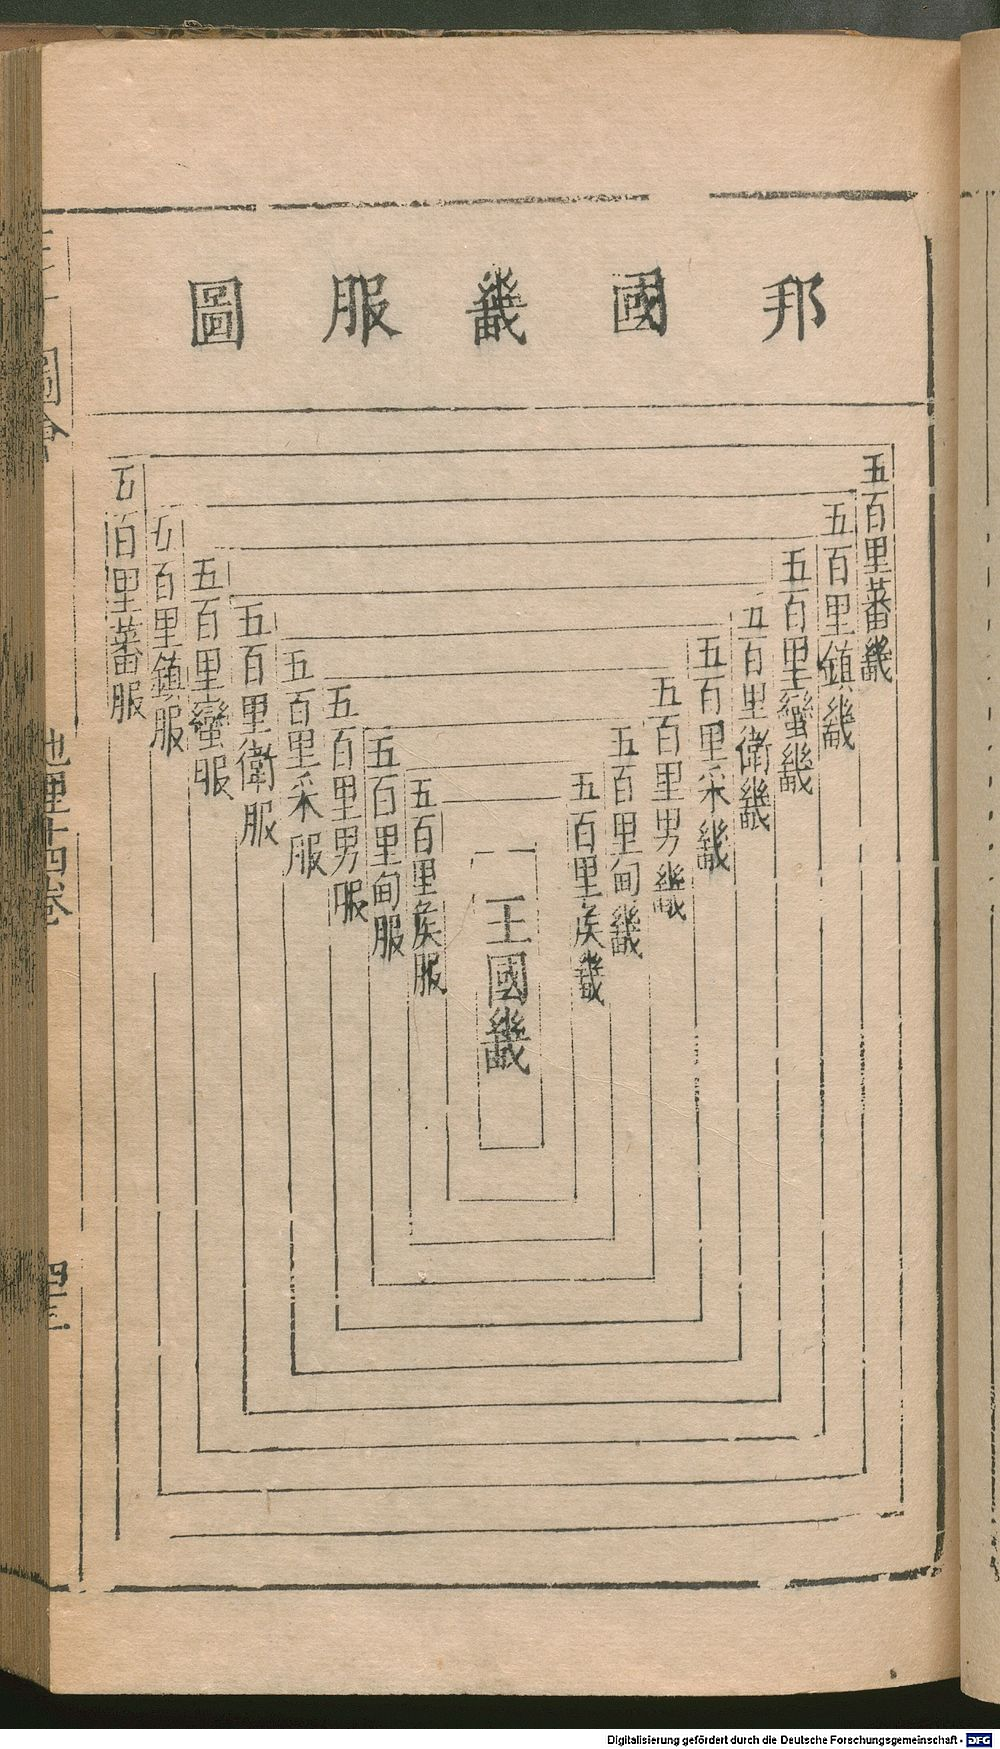 邦國畿服圖
五百里蕃畿
五百里鎮畿
五百里蠻畿
五百里衛畿
五百里采畿
五百里男畿
五百里甸畿
五百里矦畿
王國畿
五百里矦服
五百里甸服
五百里男服
五百里采服
五百里衛服
五百里蠻服
五百里鎮服
五百里蕃服
圖會
地理十四卷
四三
Digitalisierung gefördert durch die Deutsche Forschungsgemeinschaft - DFG